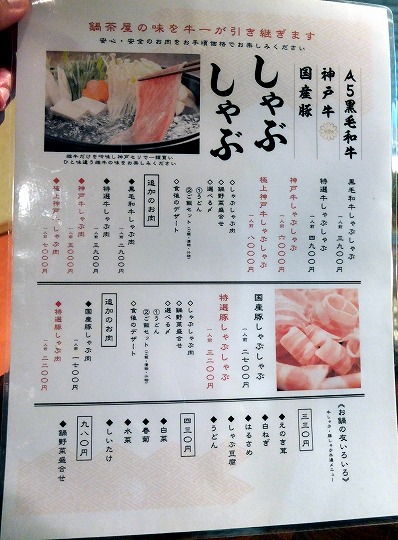 鍋茶屋の味を牛一が引き継ぎます
安心・安全のお肉をお手頃価格でお楽しみください
A5黒毛和牛
神戸牛
国産豚
しゃぶ
しゃぶ
雌牛だけを吟味し神戸セリで一頭買い
ひと味違う雌牛の味をお楽しみください
黒毛和牛しゃぶしゃぶ
一人前 三九〇〇円
特選牛しゃぶしゃぶ
一人前 四九〇〇円
神戸牛しゃぶしゃぶ
一人前 六〇〇〇円
極上神戸牛しゃぶしゃぶ
一人前 八〇〇〇円
◇しゃぶしゃぶ肉
◇鍋野菜盛合せ
◇選べる〆
①うどん
②ご飯セット
◇食後のデザート
追加のお肉
◆黒毛和牛しゃぶ肉
一人前 二九〇〇円
◆特選牛しゃぶ肉
一人前 三九〇〇円
◆神戸牛しゃぶ肉
一人前 五〇〇〇円
◆極上神戸牛しゃぶ肉
一人前 七〇〇〇円
国産豚しゃぶしゃぶ
一人前 二七〇〇円
特選豚しゃぶしゃぶ
一人前 三二〇〇円
◇しゃぶしゃぶ肉
◇鍋野菜盛合せ
◇選べる〆
①うどん
②ご飯セット
◇食後のデザート
追加のお肉
◆国産豚しゃぶ肉
一人前 一七〇〇円
◆特選豚しゃぶ肉
一人前 二二〇〇円
《お鍋の友いろいろ》
牛しゃぶ・豚しゃぶ共通メニュー
三三〇円
◆えのき茸
◆白ねぎ
◆はるさめ
◆しゃぶ豆腐
◆うどん
四三〇円
◆白菜
◆春菊
◆水菜
◆しいたけ
九八〇円
◆鍋野菜盛合せ